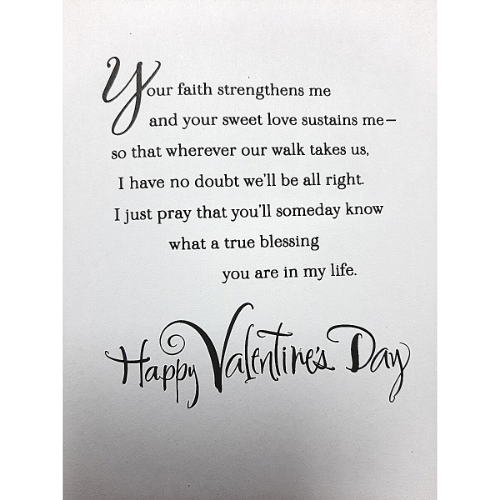 Your faith strengthens me
and your sweet love sustains me—
so that wherever our walk takes us,
I have no doubt we'll be all right.
I just pray that you'll someday know
what a true blessing
you are in my life.
Happy Valentine's Day